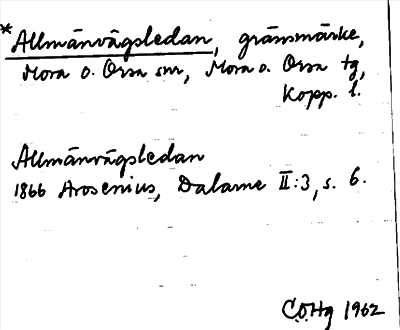 *Allmänvägsledan, gränsmärke,
Mora o. Orsa snr, Mora o. Orsa tg,
Kopp. l.
Allmänvägsledan
1866 Arosenius, Dalarne II:3, s. 6.
COHg 1962